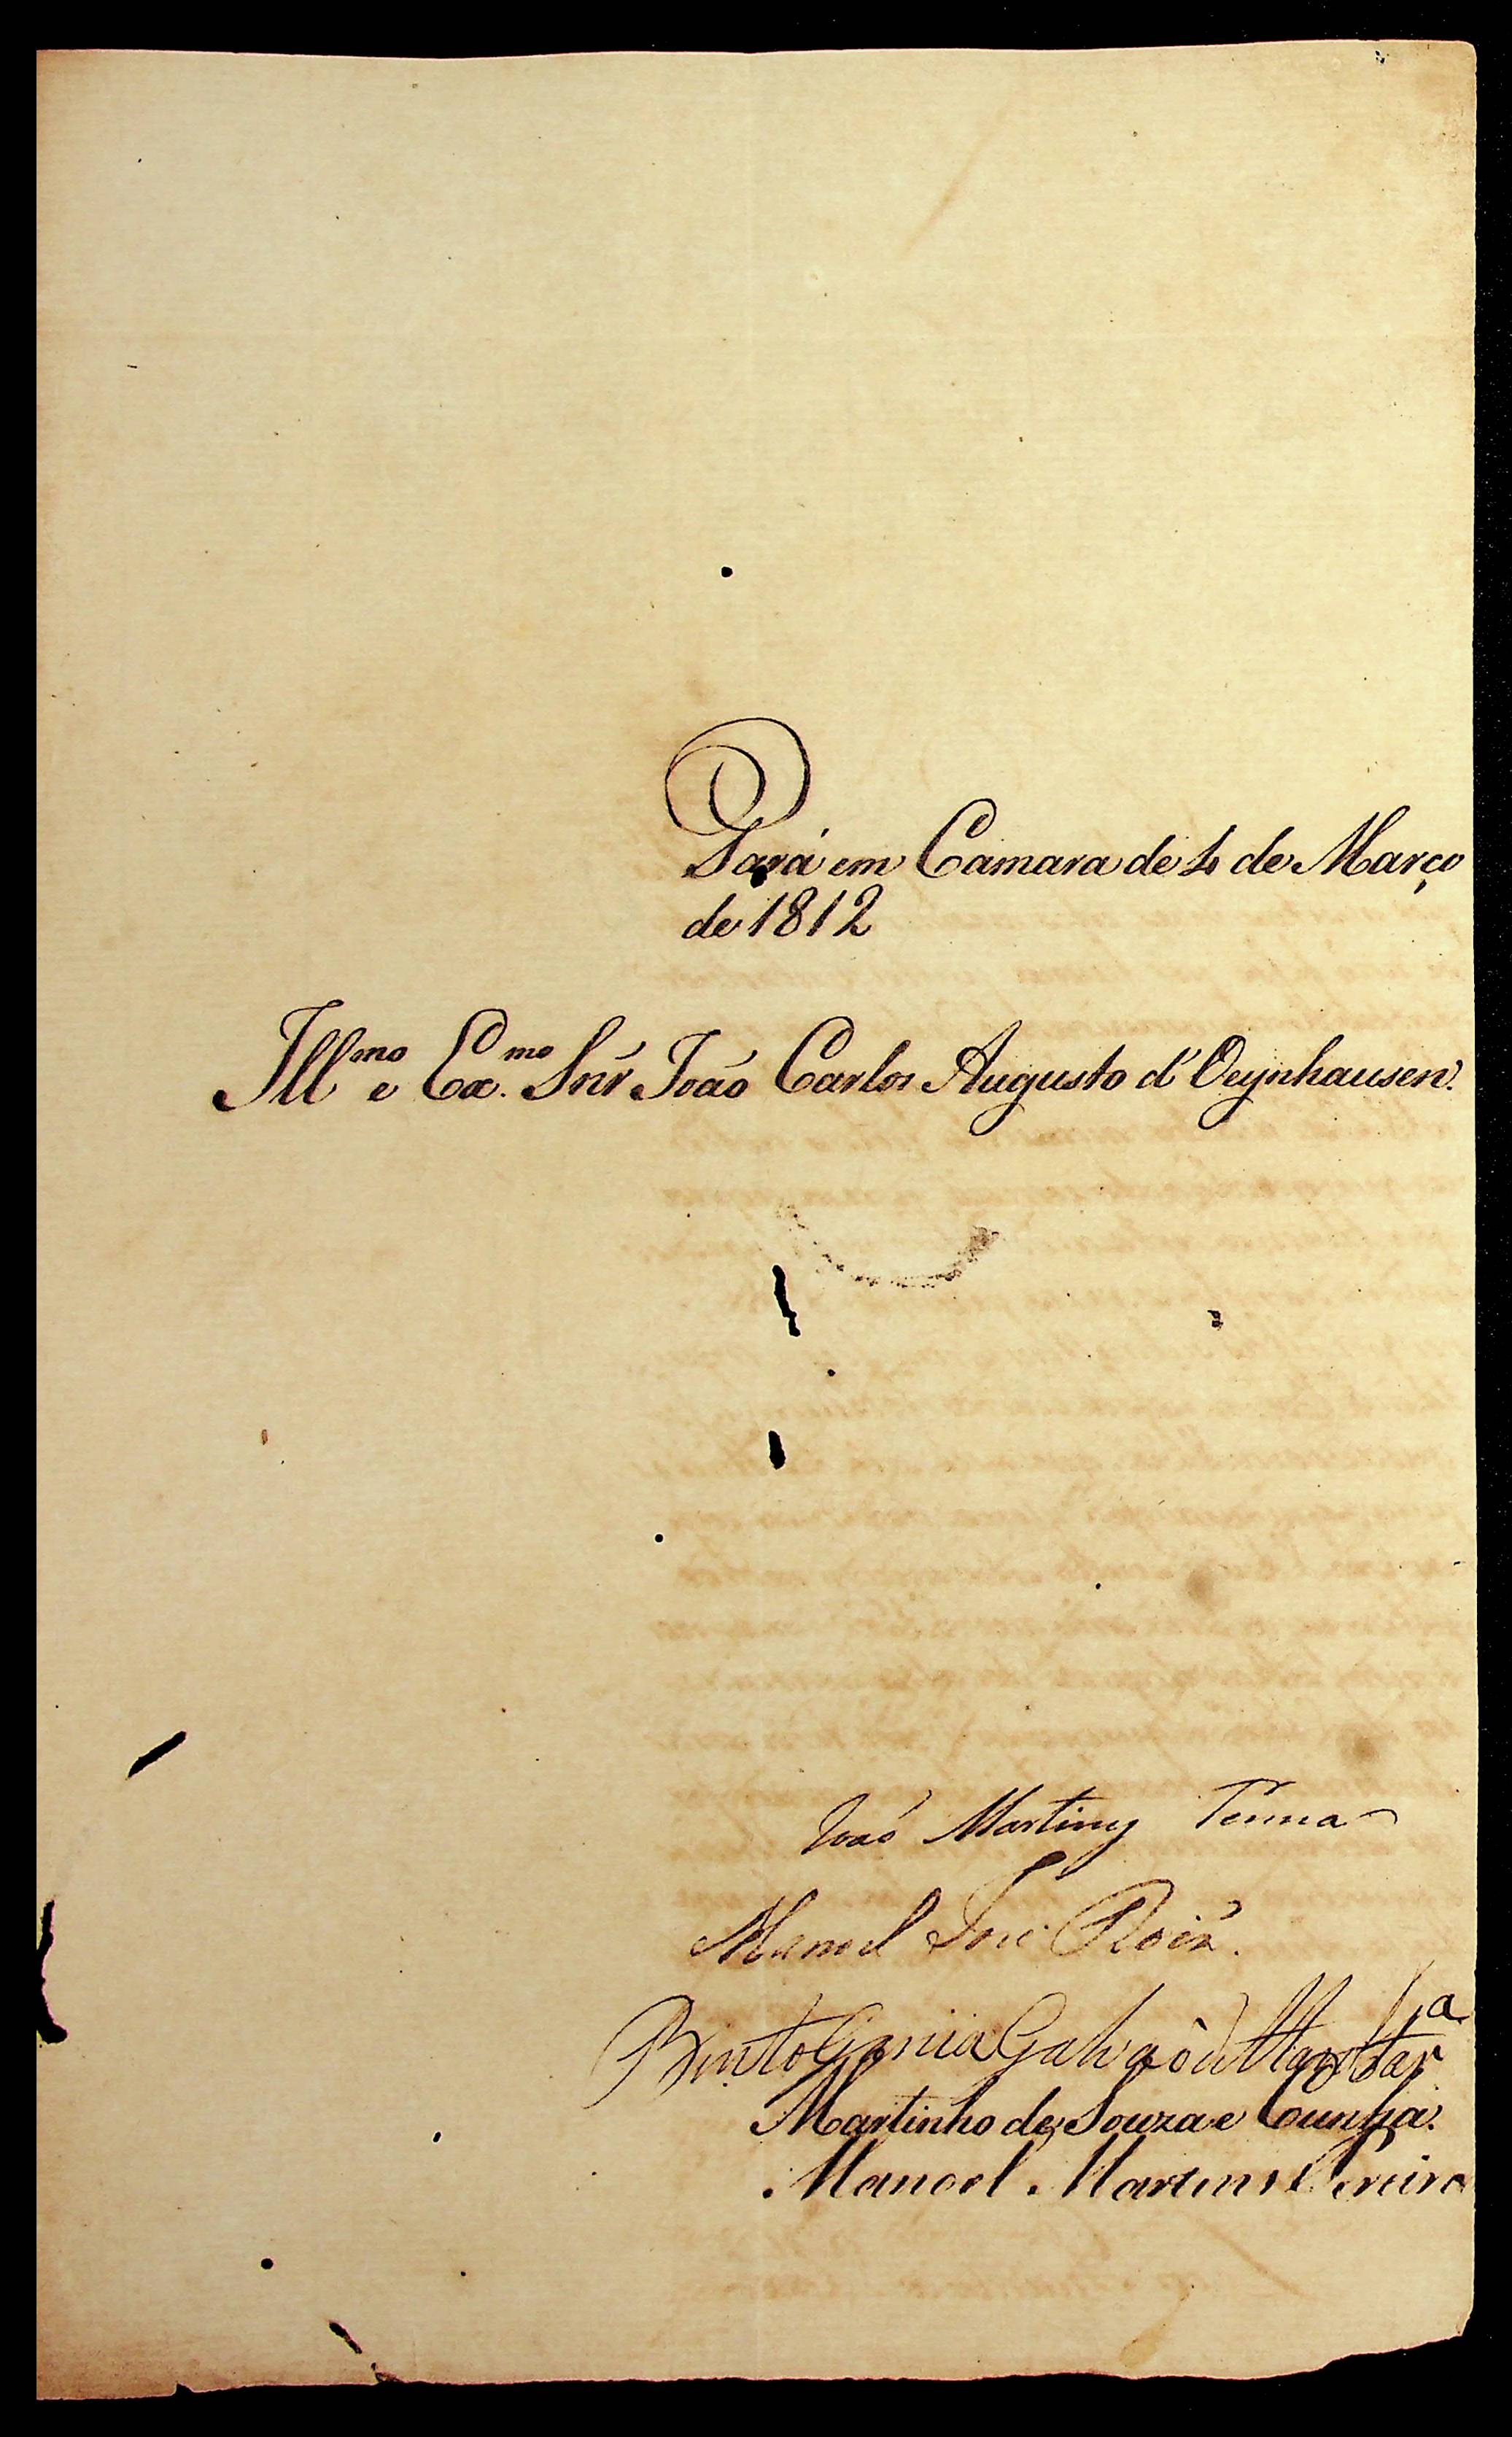 Pará em Camara de 4 de Março
de 1812
Ill.mo e Ex.mo Snr João Carlos Augusto d'Oeynhausen.
João Martins Penna
Manoel José Roiz.
Bento Garcia Galvaò d
Martinho de Souza e Cunha.
Manoel Martins Pereira